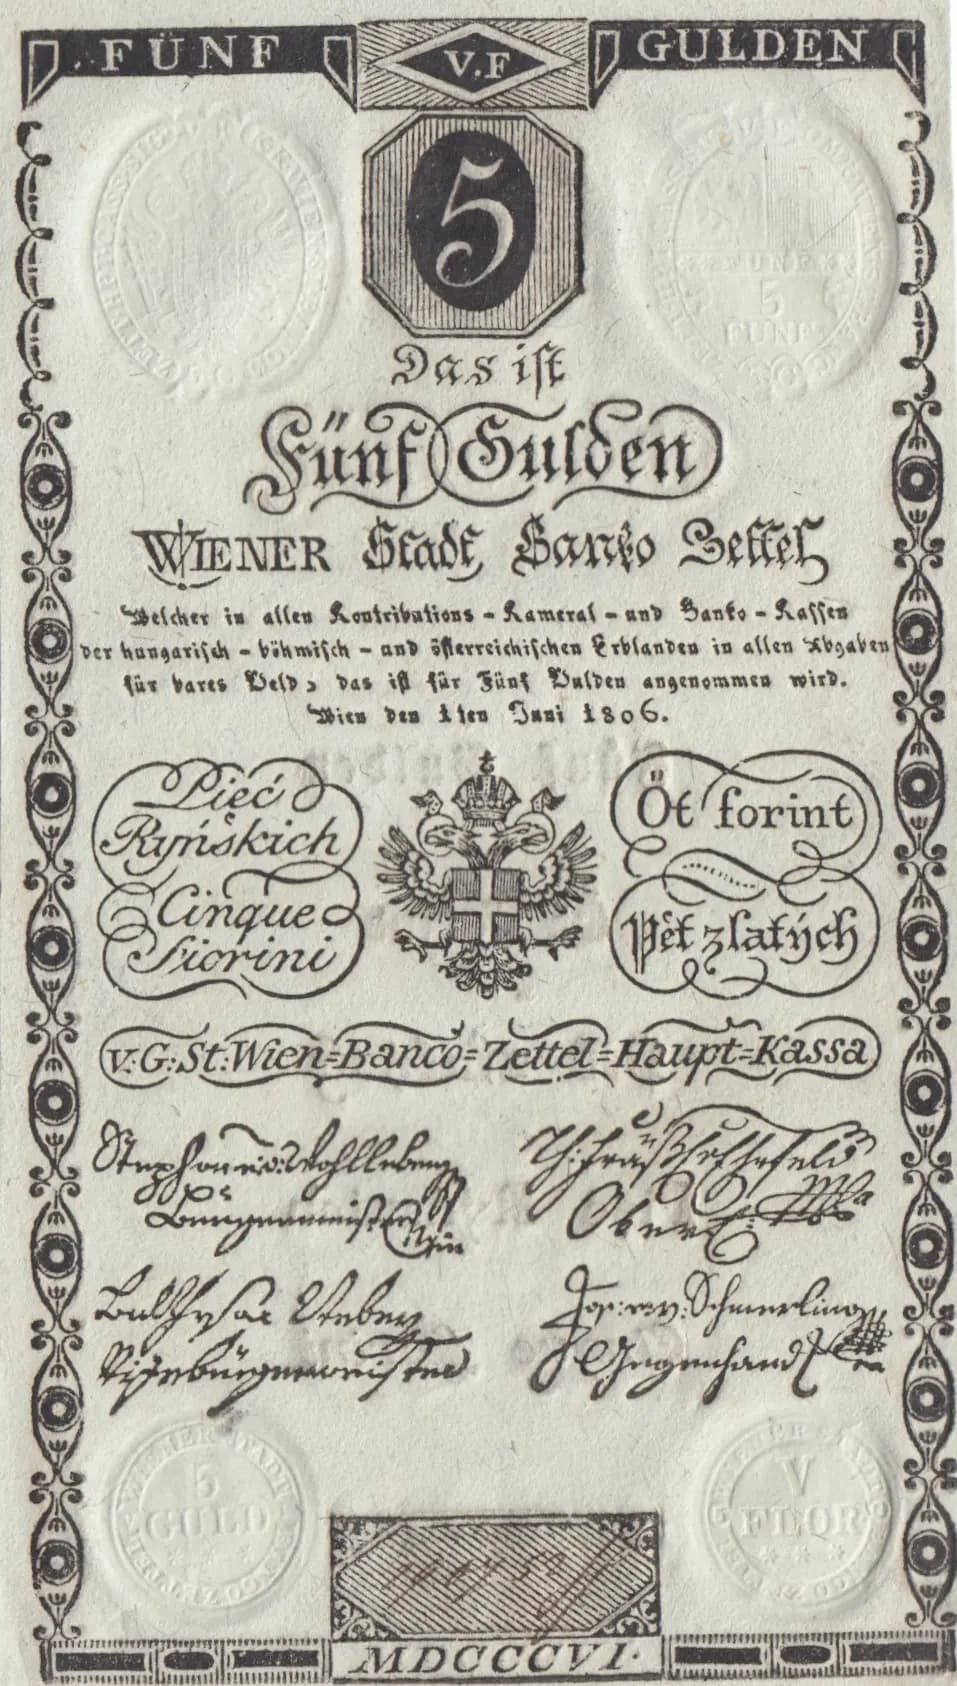 FÜNF V.F GULDEN
5
FÜNF
5
FÜNF
Das ist
Fünf Gulden
WIENER Stadt Banko Zettel
Welcher in allen Kontributions - Kameral - und Banko - Kassen
der hungarisch - böhmisch - und österreichischen Erblanden in allen Abgaben
für bares Geld, das ist für Fünf Gulden angenommen wird.
Wien den 1ten Juni 1806.
Pięć
Ryńskich
Cinque
Fiorini
Öt forint
Pĕt zlatých
v: G: St: Wien=Banco=Zettel=Haupt=Kassa
Stephan
Burgermeister
Ober
Jos: v: Schmerling
Gegenhand
5
GULD
V
FLOR
MDCCCVI.